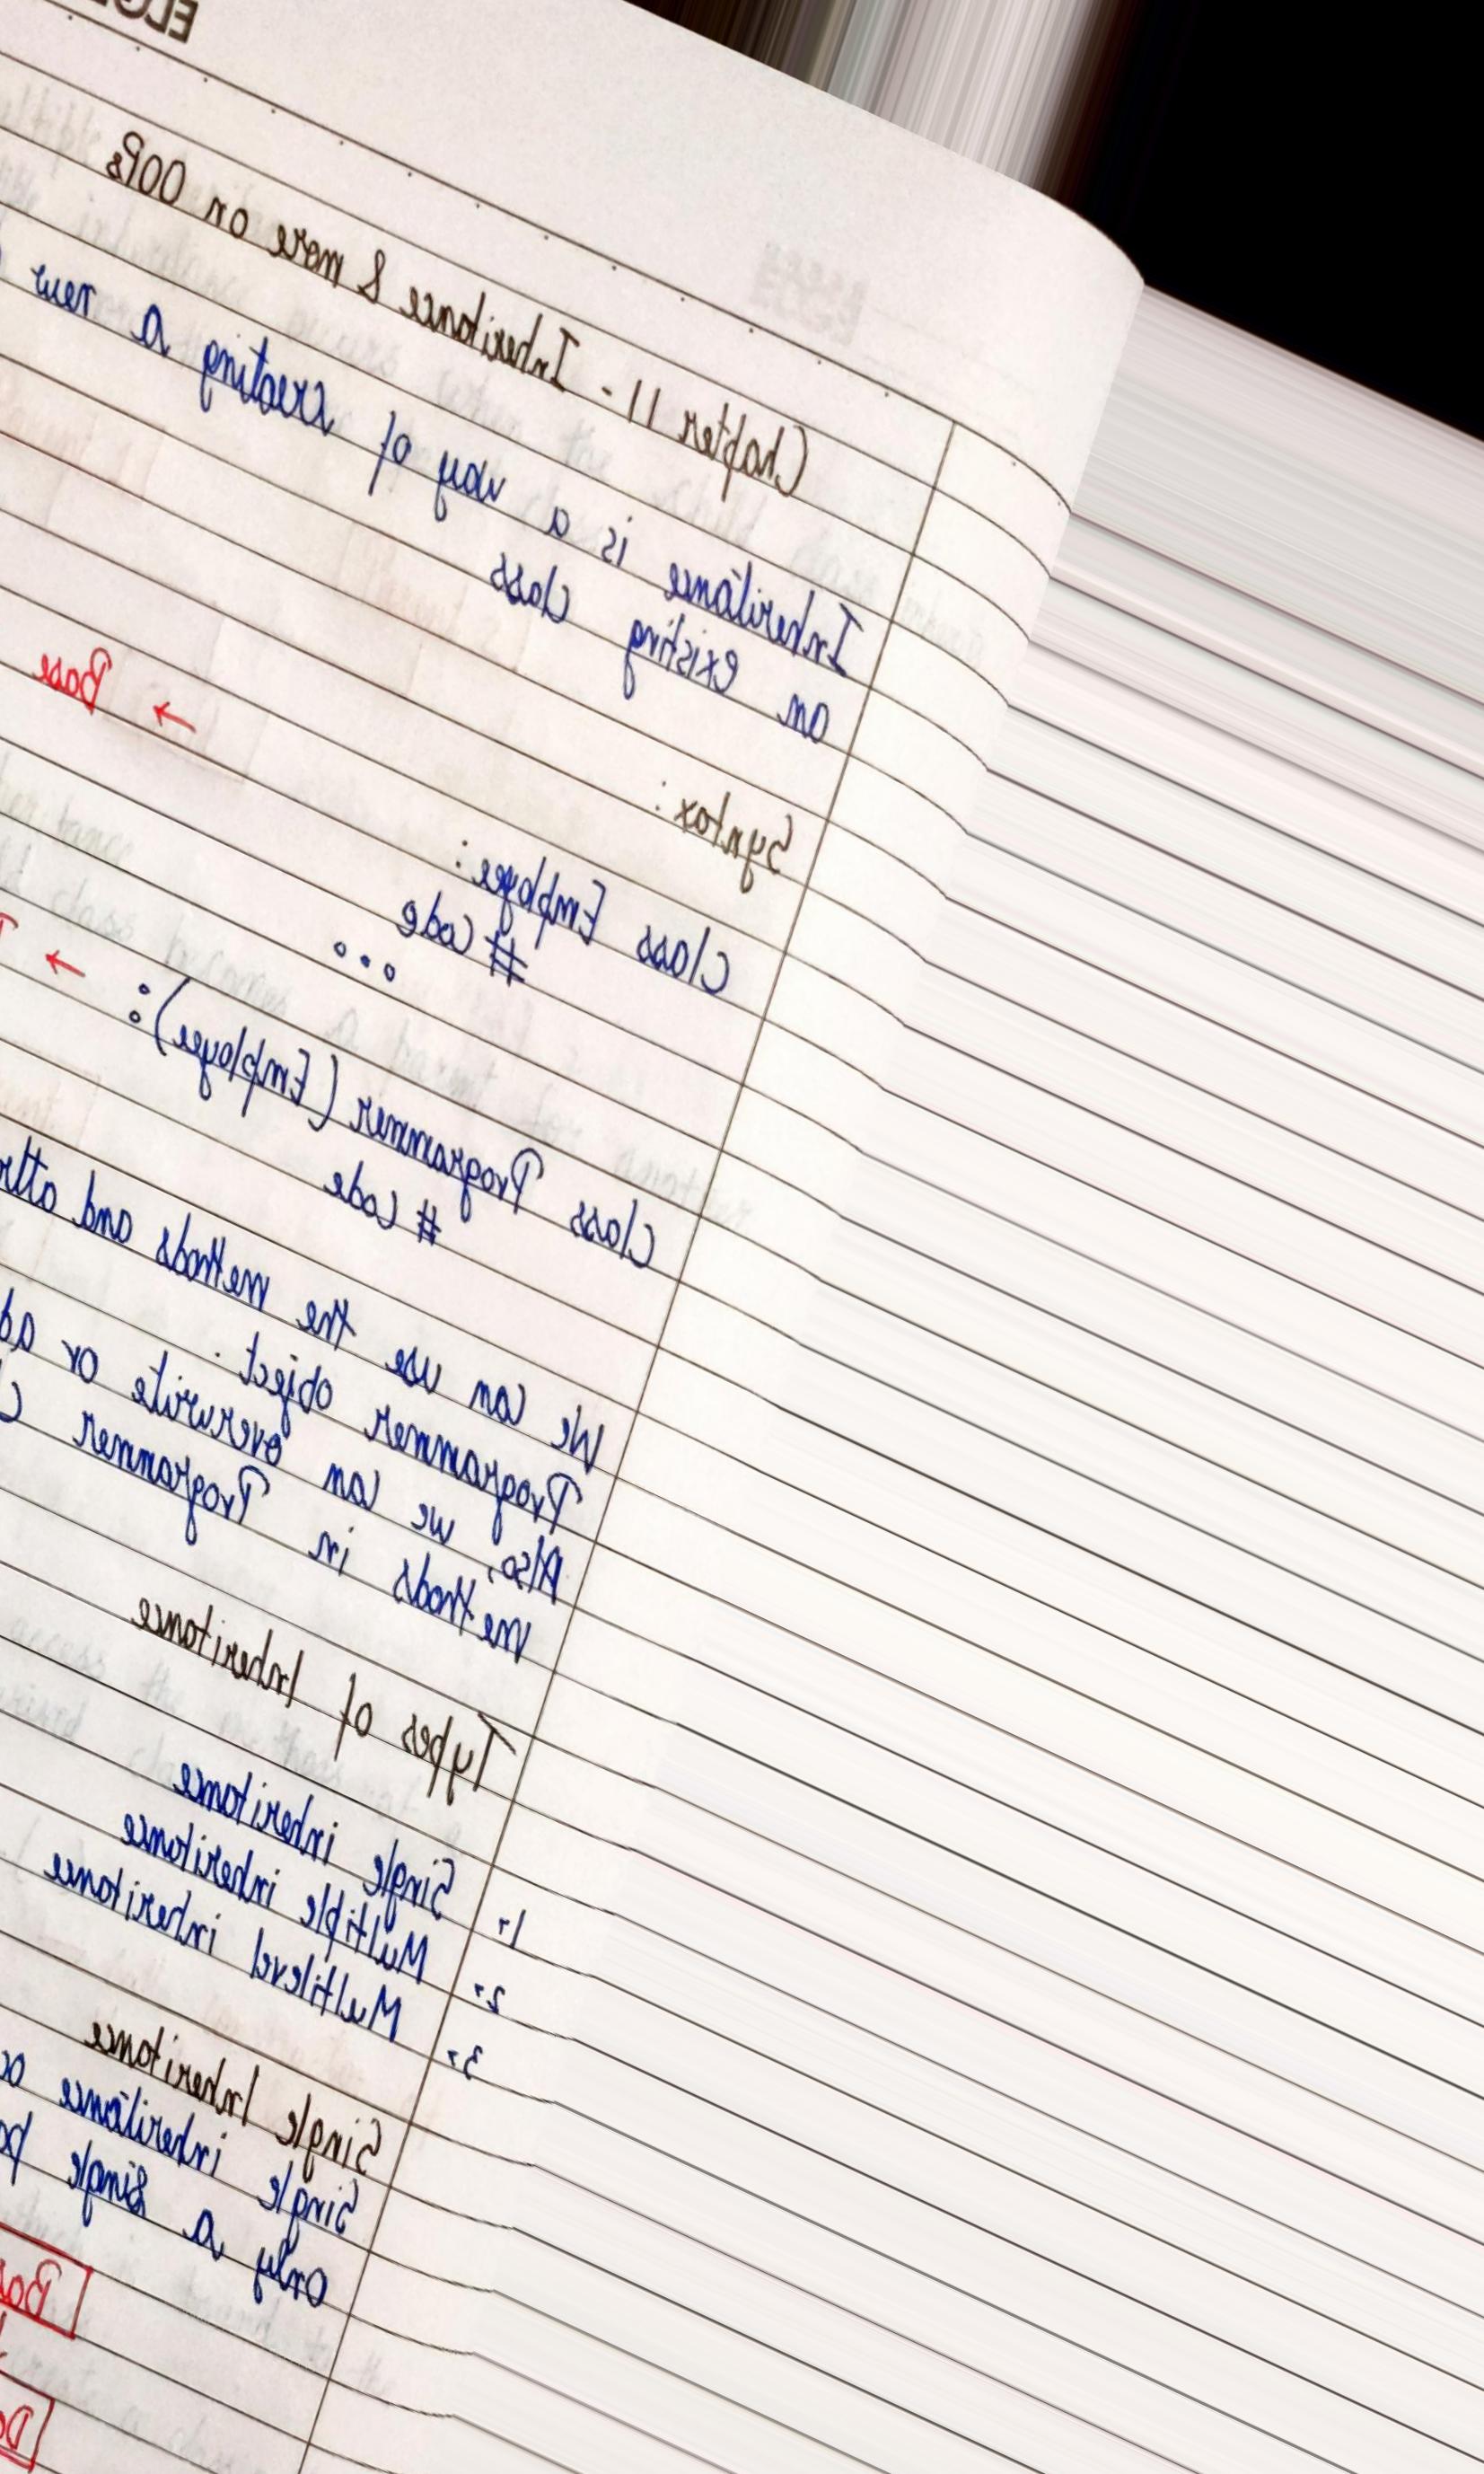 Chapter 11 - Inheritance & more on OOPs
Inheritance is a way of creating a new
an existing class
Syntax:
Class Employee:
# Code
...
← Base
Class Programmer (Employee):
←
# Code
We can use the methods and attr
Programmer object.
Also, we can overwrite or ad
methods in Programmer C
Types of Inheritance
1→ Single inheritance
2→ Multiple inheritance
3→ Multilevel inheritance
Single Inheritance
Single inheritance oc
only a single pa
Bas
De